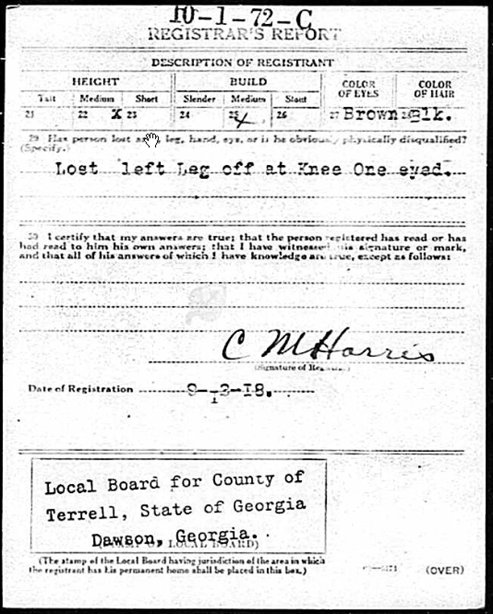 10-1-72-C
REGISTRAR'S REPORT
DESCRIPTION OF REGISTRANT
HEIGHT BUILD COLOR OF EYES COLOR OF HAIR
Tall Medium Short Slender Medium Stout
21 22 X 23 24 25 ✓ 26 27 Brown 28 Blk.
29 Has person lost arm, leg, hand, eye, or is he obviously physically disqualified?
(Specify.)
Lost left Leg off at Knee One eyed.
30 I certify that my answers are true; that the person registered has read or has
had read to him his own answers; that I have witnessed his signature or mark,
and that all of his answers of which I have knowledge are true, except as follows:
C M Harris
(Signature of Registrar)
Date of Registration 9-12-18.
Local Board for County of
Terrell, State of Georgia
Dawson, Georgia.
LOCAL BOARD)
(The stamp of the Local Board having jurisdiction of the area in which
the registrant has his permanent home shall be placed in this box.)
(OVER)